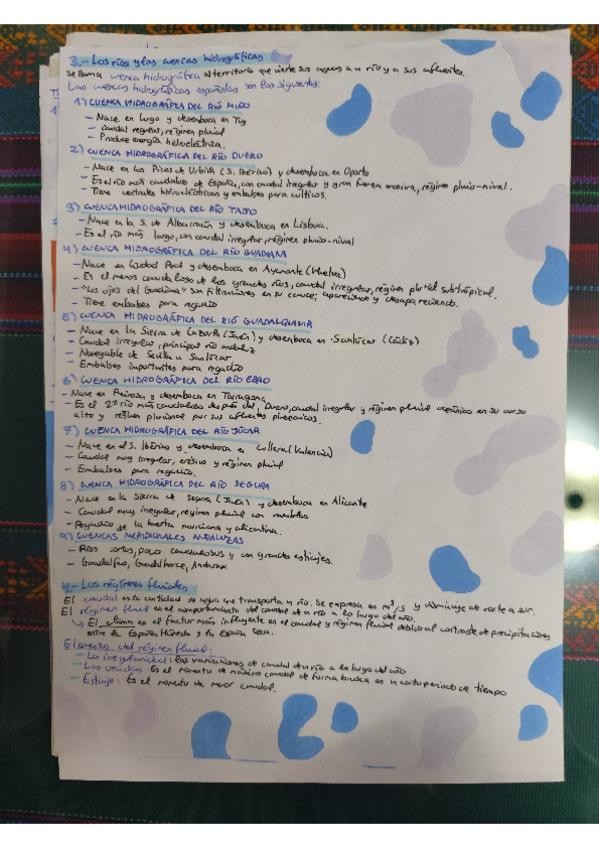 3.- Los ríos y las cuencas hidrográficas
Se llama cuenca hidrográfica al territorio que vierte sus aguas a un río y a sus afluentes.
Las cuencas hidrográficas españolas son las siguientes:
1) CUENCA HIDROGRÁFICA DEL RÍO MIÑO
- Nace en Lugo y desemboca en Tuy
- Caudal regular, régimen pluvial
- Produce energía hidroeléctrica.
2) CUENCA HIDROGRÁFICA DEL RÍO DUERO
- Nace en los Picos de Urbión (S. Ibérico) y desemboca en Oporto
- Es el río más caudaloso de España, con caudal irregular y gran fuerza erosiva, régimen pluvio-nival.
- Tiene centrales hidroeléctricas y embalses para cultivos.
3) CUENCA HIDROGRÁFICA DEL RÍO TAJO
- Nace en la S. de Albarracín y desemboca en Lisboa.
- Es el río más largo, con caudal irregular, régimen pluvio-nival
4) CUENCA HIDROGRÁFICA DEL RÍO GUADIANA
- Nace en Ciudad Real y desemboca en Ayamonte (Huelva)
- Es el menos caudaloso de los grandes ríos, caudal irregular, régimen pluvial subtropical.
- "Los ojos del Guadiana" son filtraciones en su cauce; apareciendo y desapareciendo.
- Tiene embalses para regadío
5) CUENCA HIDROGRÁFICA DEL RÍO GUADALQUIVIR
- Nace en la Sierra de Cazorla (Jaén) y desemboca en Sanlúcar (Cádiz)
- Caudal irregular, principal río andaluz
- Navegable de Sevilla a Sanlúcar
- Embalses importantes para regadío
6) CUENCA HIDROGRÁFICA DEL RÍO EBRO
- Nace en Reinosa y desemboca en Tarragona
- Es el 2º río más caudaloso después del Duero, caudal irregular y régimen pluvial oceánico en su curso
alto y régimen pluvionival por sus afluentes pirenaicos.
7) CUENCA HIDROGRÁFICA DEL RÍO JÚCAR
- Nace en el S. Ibérico y desemboca en Cullera (Valencia)
- Caudal muy irregular, erosivo y régimen pluvial
- Embalses para regadío.
8) CUENCA HIDROGRÁFICA DEL RÍO SEGURA
- Nace en la Sierra de Segura (Jaén) y desemboca en Alicante
- Caudal muy irregular, régimen pluvial con
- Regadío de la huerta murciana y alicantina.
9) CUENCAS MERIDIONALES ANDALUZAS
- Ríos cortos, poco caudalosos y con grandes estiajes.
- Guadalfeo, Guadalhorce, Andarax
4.- Los regímenes fluviales
El caudal es la cantidad de agua que transporta un río. Se expresa en m³/s y disminuye de norte a sur.
El régimen fluvial es el comportamiento del caudal de un río a lo largo del año.
↳ El clima es el factor más influyente en el caudal y régimen fluvial debido al contraste de precipitaciones
entre la España Húmeda y la España Seca.
Elementos del régimen fluvial:
- La irregularidad: las variaciones de caudal de un río a lo largo del año
- Las crecidas: Es el momento de máximo caudal de forma brusca en un corto periodo de tiempo
- Estiaje: Es el momento de menor caudal.